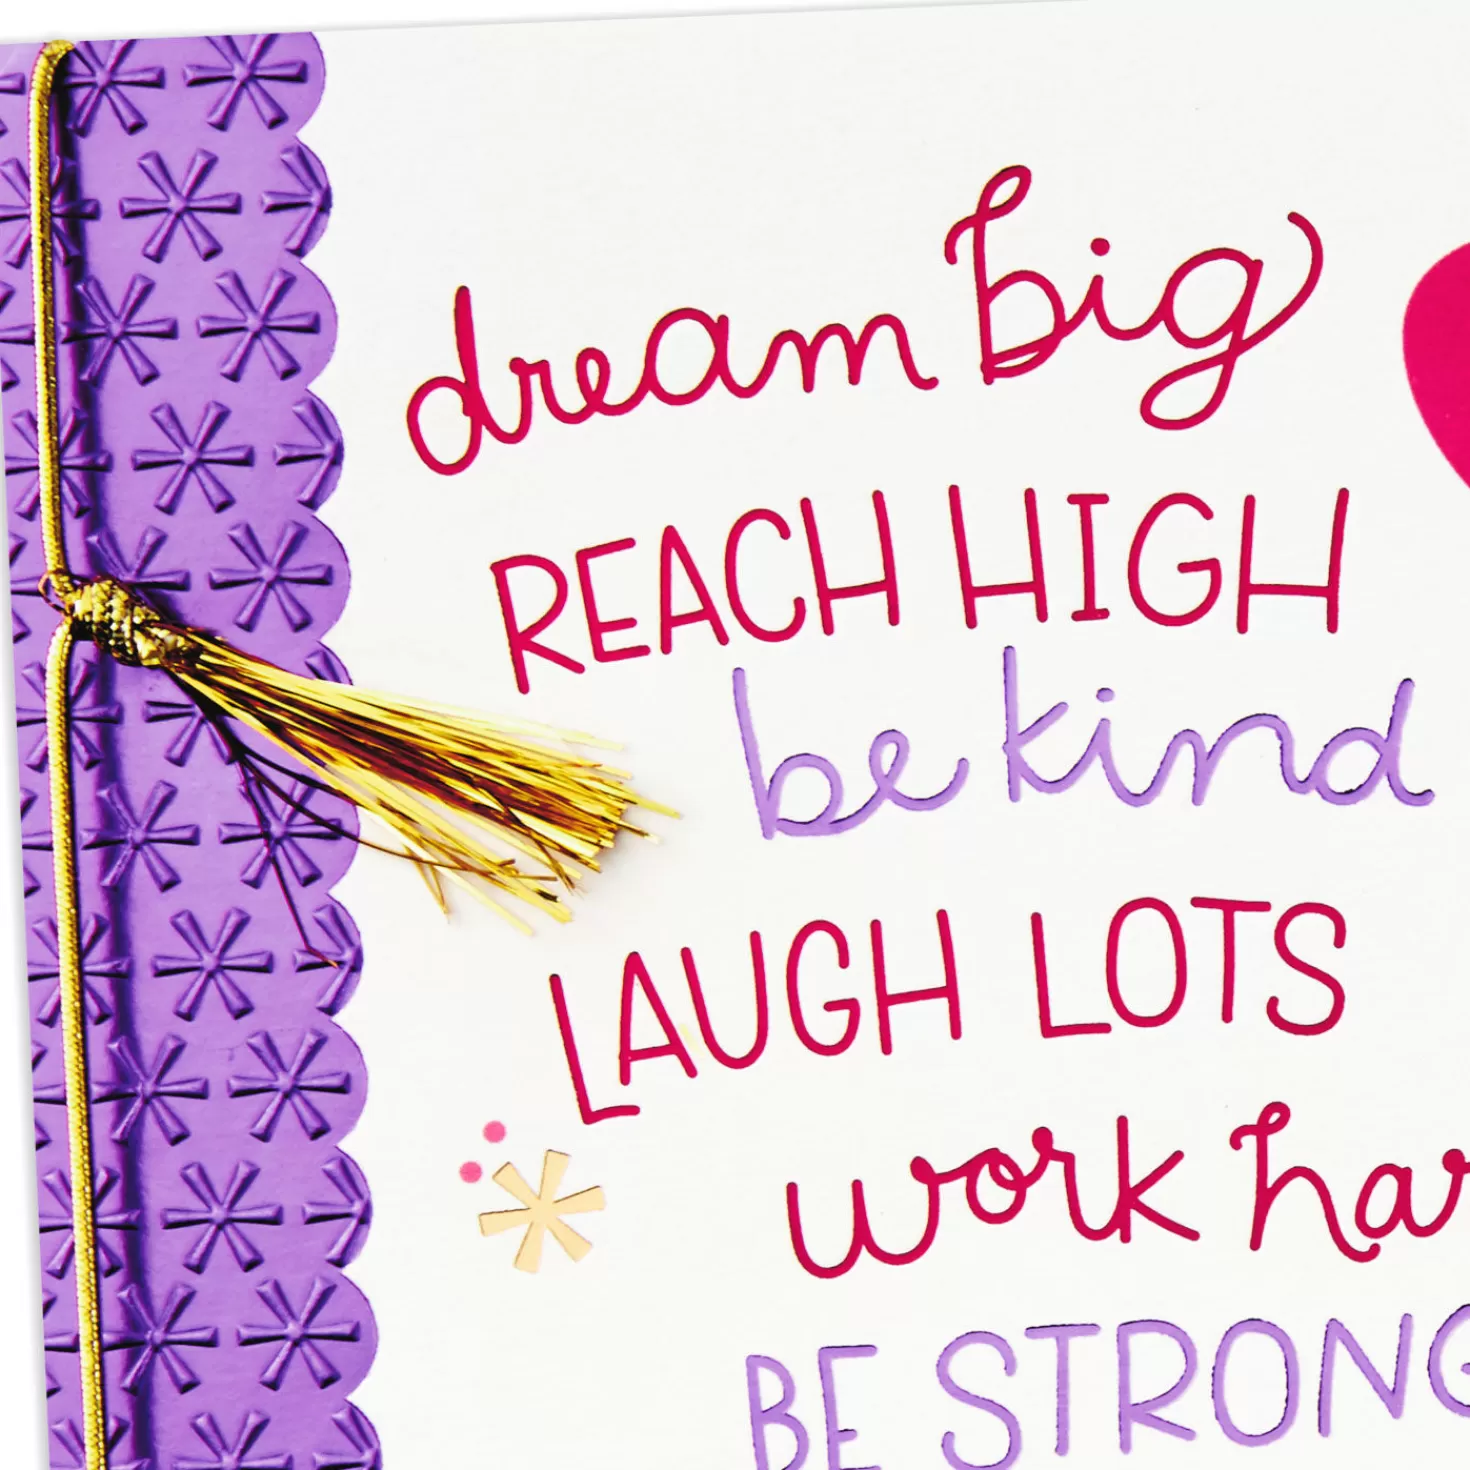 dream big
REACH HIGH
be kind
LAUGH LOTS
work har
BE STRONG